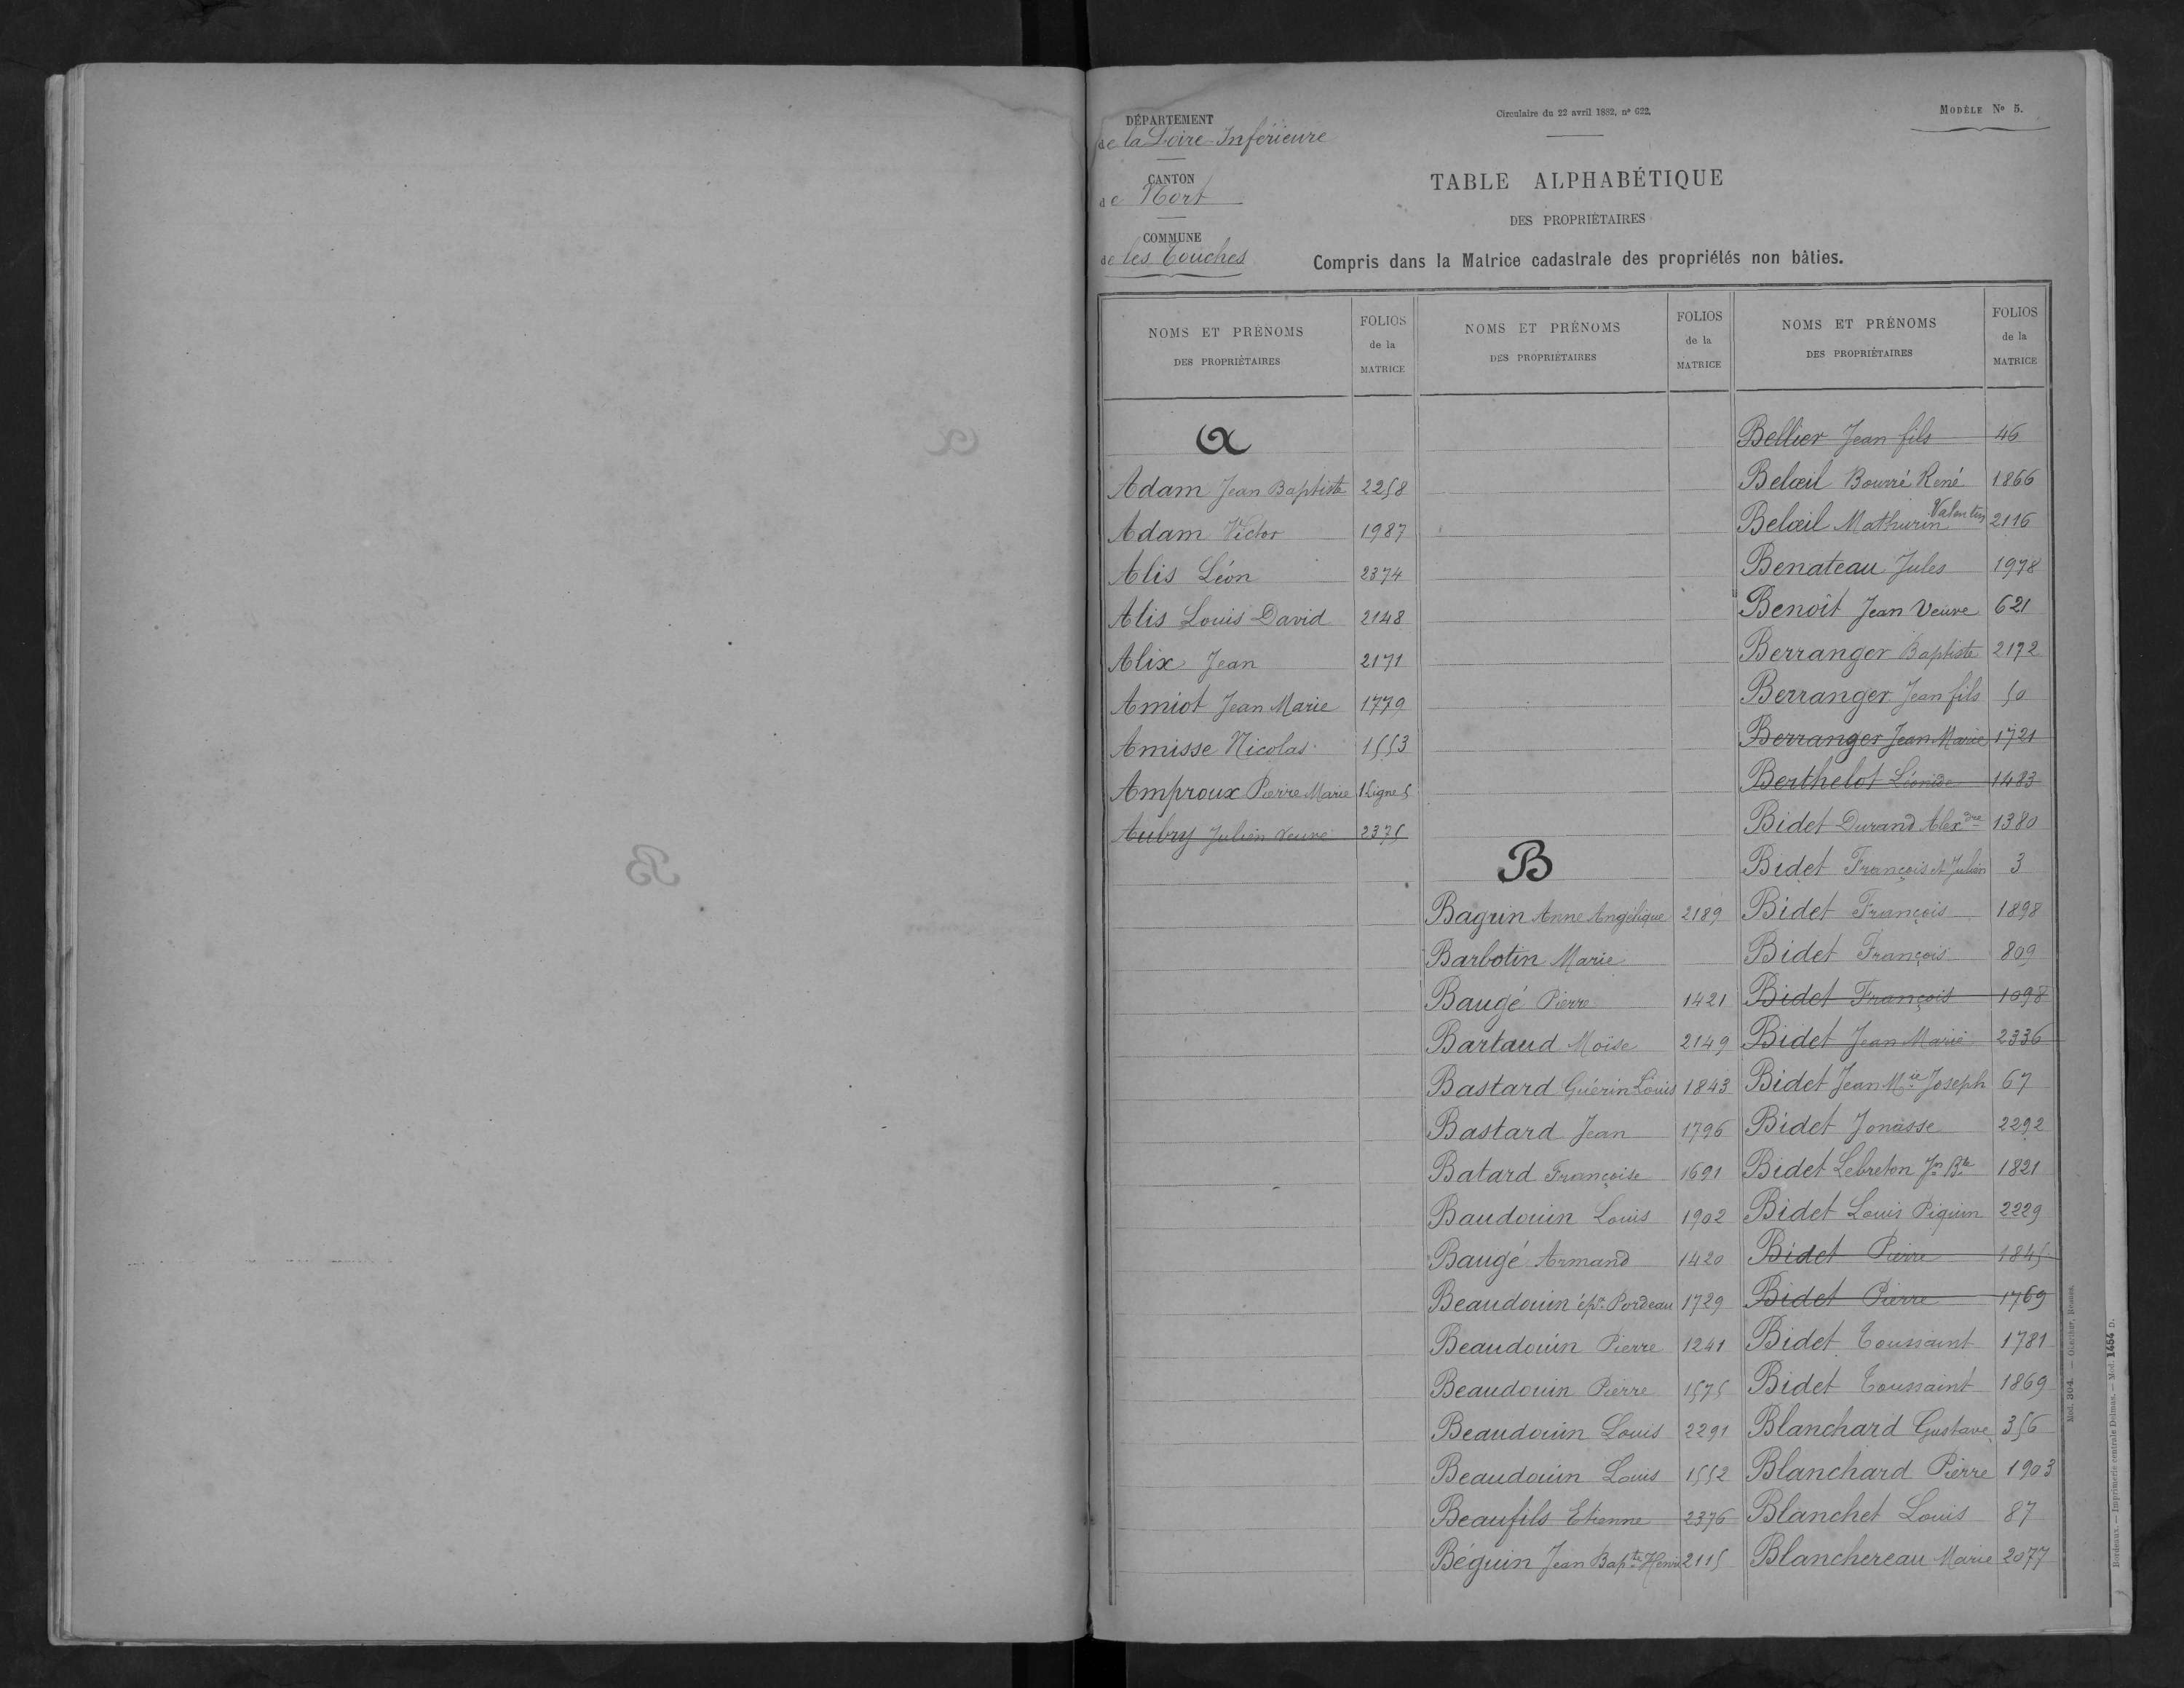 DÉPARTEMENT
de la Loire-Inférieure
CANTON
de Nort
COMMUNE
de les Touches
Circulaire du 22 avril 1882, nº 622.
MODÈLE Nº 5.
TABLE ALPHABÉTIQUE
DES PROPRIÉTAIRES
Compris dans la Matrice cadastrale des propriétés non bâties.
NOMS ET PRÉNOMS
DES PROPRIÉTAIRES
FOLIOS
de la
MATRICE
A
Adam Jean Baptiste 2258
Adam Victor 1987
Alis Léon 2374
Alis Louis David 2148
Alix Jean 2171
Amiot Jean Marie 1779
Amisse Nicolas 1553
Amproux Pierre Marie 1 Ligne 5
Aubry Julien veuve 2375
NOMS ET PRÉNOMS
DES PROPRIÉTAIRES
FOLIOS
de la
MATRICE
B
Baguin Anne Angélique 2189
Barbotin Marie
Baugé Pierre 1421
Bartaud Moïse 2149
Bastard Guérin Louis 1843
Bastard Jean 1796
Batard Françoise 1691
Baudouin Louis 1902
Baugé Armand 1420
Beaudouin épse Pordeau 1729
Beaudouin Pierre 1241
Beaudouin Pierre 1575
Beaudouin Louis 2291
Beaudouin Louis 1552
Beaufils Etienne 2376
Béguin Jean Bapte Henri 2115
NOMS ET PRÉNOMS
DES PROPRIÉTAIRES
FOLIOS
de la
MATRICE
Bellier Jean fils 46
Belœil Bourré René 1866
Belœil Mathurin Valentin 2116
Benateau Jules 1978
Benoît Jean Veuve 621
Berranger Baptiste 2172
Berranger Jean fils 50
Berranger Jean Marie 1721
Berthelot 1483
Bidet Durand Alexdre 1380
Bidet François et Julien 3
Bidet François 1898
Bidet François 809
Bidet François 1098
Bidet Jean Marie 2336
Bidet Jean Mie Joseph 67
Bidet Jonasse 2292
Bidet Lebreton Jn Bte 1821
Bidet Louis Piguin 2229
Bidet Pierre 1845
Bidet Pierre 1769
Bidet Toussaint 1781
Bidet Toussaint 1869
Blanchard Gustave 356
Blanchard Pierre 1903
Blanchet Louis 87
Blanchereau Marie 2077
Mod. 304. — Oberthur, Rennes.
Bordeaux. — Imprimerie centrale Delmas. — Mod. 1454 D.